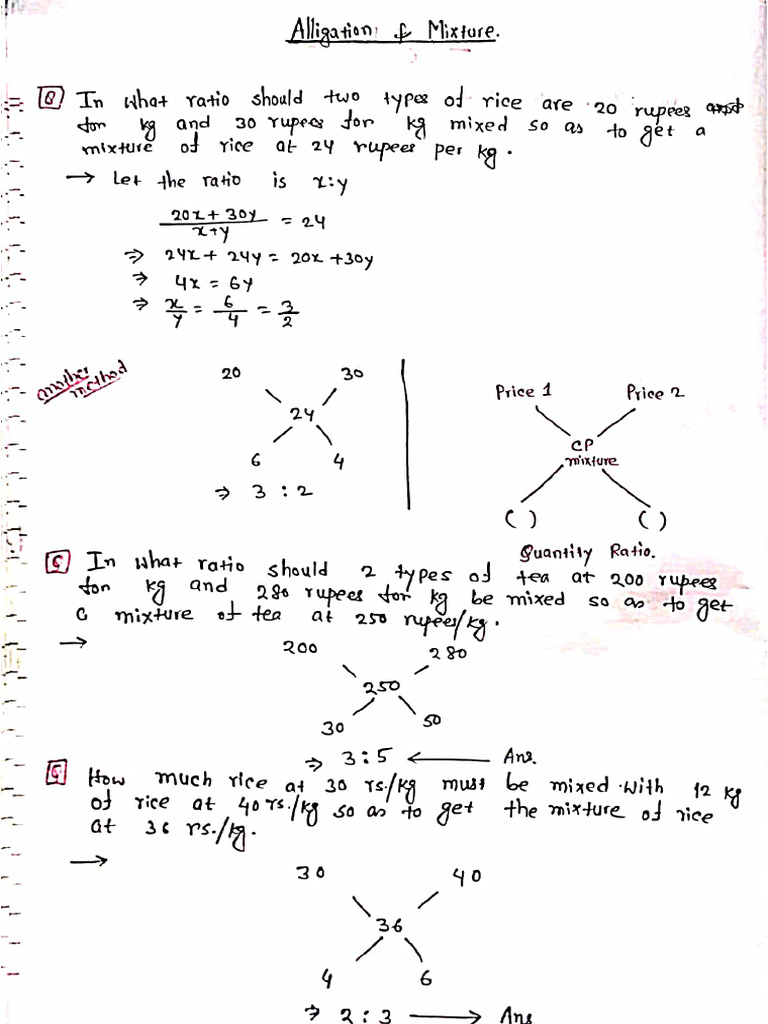 Alligation & Mixture.
Q In what ratio should two types of rice are 20 rupees
for kg and 30 rupees for kg mixed so as to get a
mixture of rice at 24 rupees per kg.
→ Let the ratio is x:y
20x + 30y / x+y = 24
⇒ 24x + 24y = 20x + 30y
⇒ 4x = 6y
⇒ x/y = 6/4 = 3/2
another method
20 30
24
6 4
⇒ 3 : 2
Price 1 Price 2
CP
mixture
( ) ( )
Quantity Ratio.
Q In what ratio should 2 types of tea at 200 rupees
for kg and 280 rupees for kg be mixed so as to get
a mixture of tea at 250 rupees/kg.
→
200 280
250
30 50
⇒ 3:5 ← Ans.
Q How much rice at 30 rs./kg must be mixed with 12 kg
of rice at 40 rs./kg so as to get the mixture of rice
at 36 rs./kg.
→
30 40
36
4 6
⇒ 2 : 3 → Ans